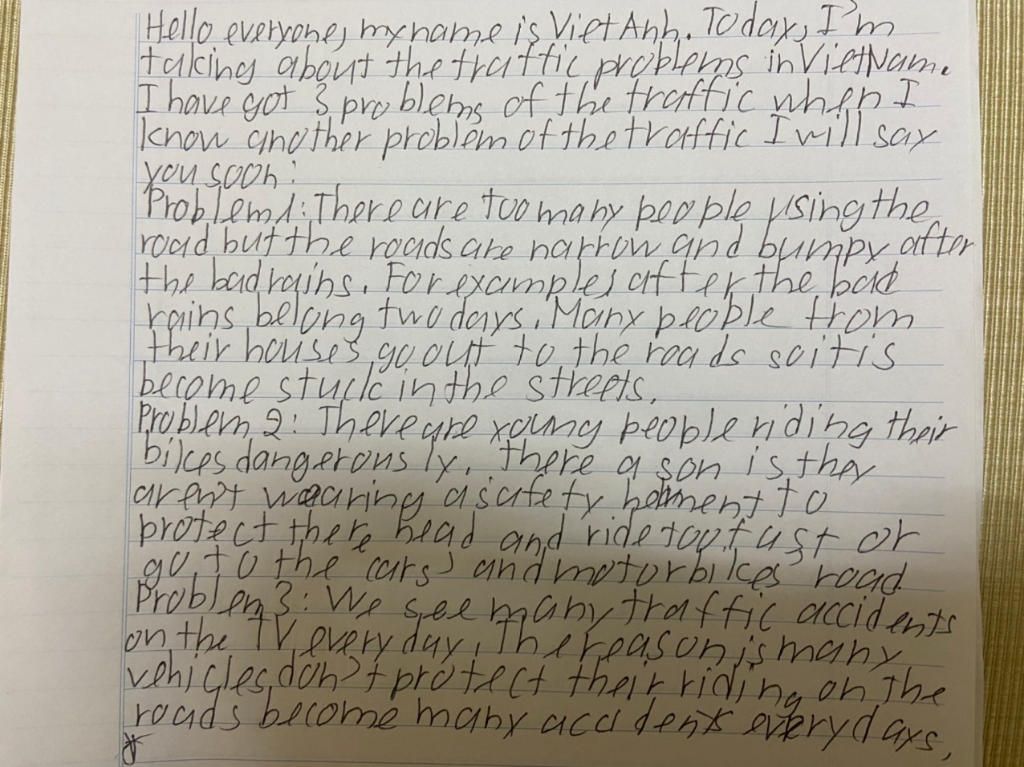 Hello everyone, my name is Viet Anh. Today, I'm
taking about the traffic problems in VietNam.
I have got 3 problems of the traffic when I
know another problem of the traffic I will say
you soon:
Problem 1: There are too many people using the
road but the roads are narrow and bumpy after
the bad rains. For example, after the bad
rains belong two days. Many people from
their houses go out to the roads so it is
become stuck in the streets.
Problem 2: There are young people riding their
bikes dangerously. There a son is they
aren't wearing a safety helment to
protect there head and ride too fast or
go to the cars' and motorbikes' road
Problem 3: We see many traffic accidents
on the TV every day. The reason is many
vehicles don't protect their riding on the
roads become many accidents every days.